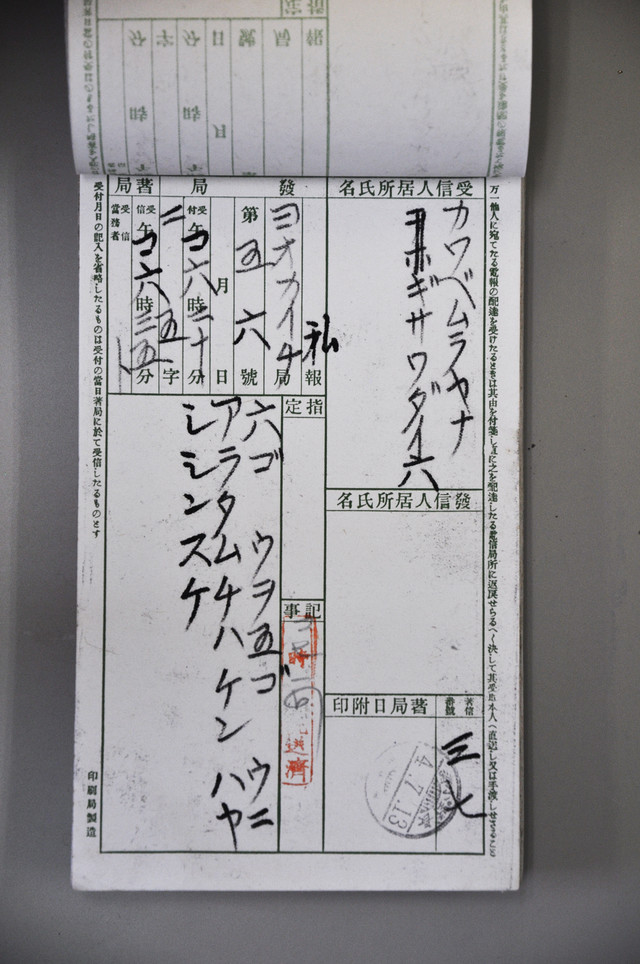 万一他人に宛てたる電報の配達を受けたるときは其由を付箋し直に之を配達したる電信局所に返戻せらるへく決して其受取本人へ直送し又は手渡しせさること
受信人居所氏名
カワベムラヤナ
ヨホギサワダイ六
發信人居所氏名
著信番號
三七
著局日附印
4.7.13
私報
ヨオカイチ局
第五六號
月日
受付午コ六時二十分
ニ五字
發局
受信午コ六時三五分
受信當務者
著局
指定
記事
時
送済
六ゴ ウヲ五ゴ ウニ
アラタムチハケン ハヤ
シシンスケ
受付月日の記入を省略したるものは受付の當日著局に於て受信したるものとす
印刷局製造